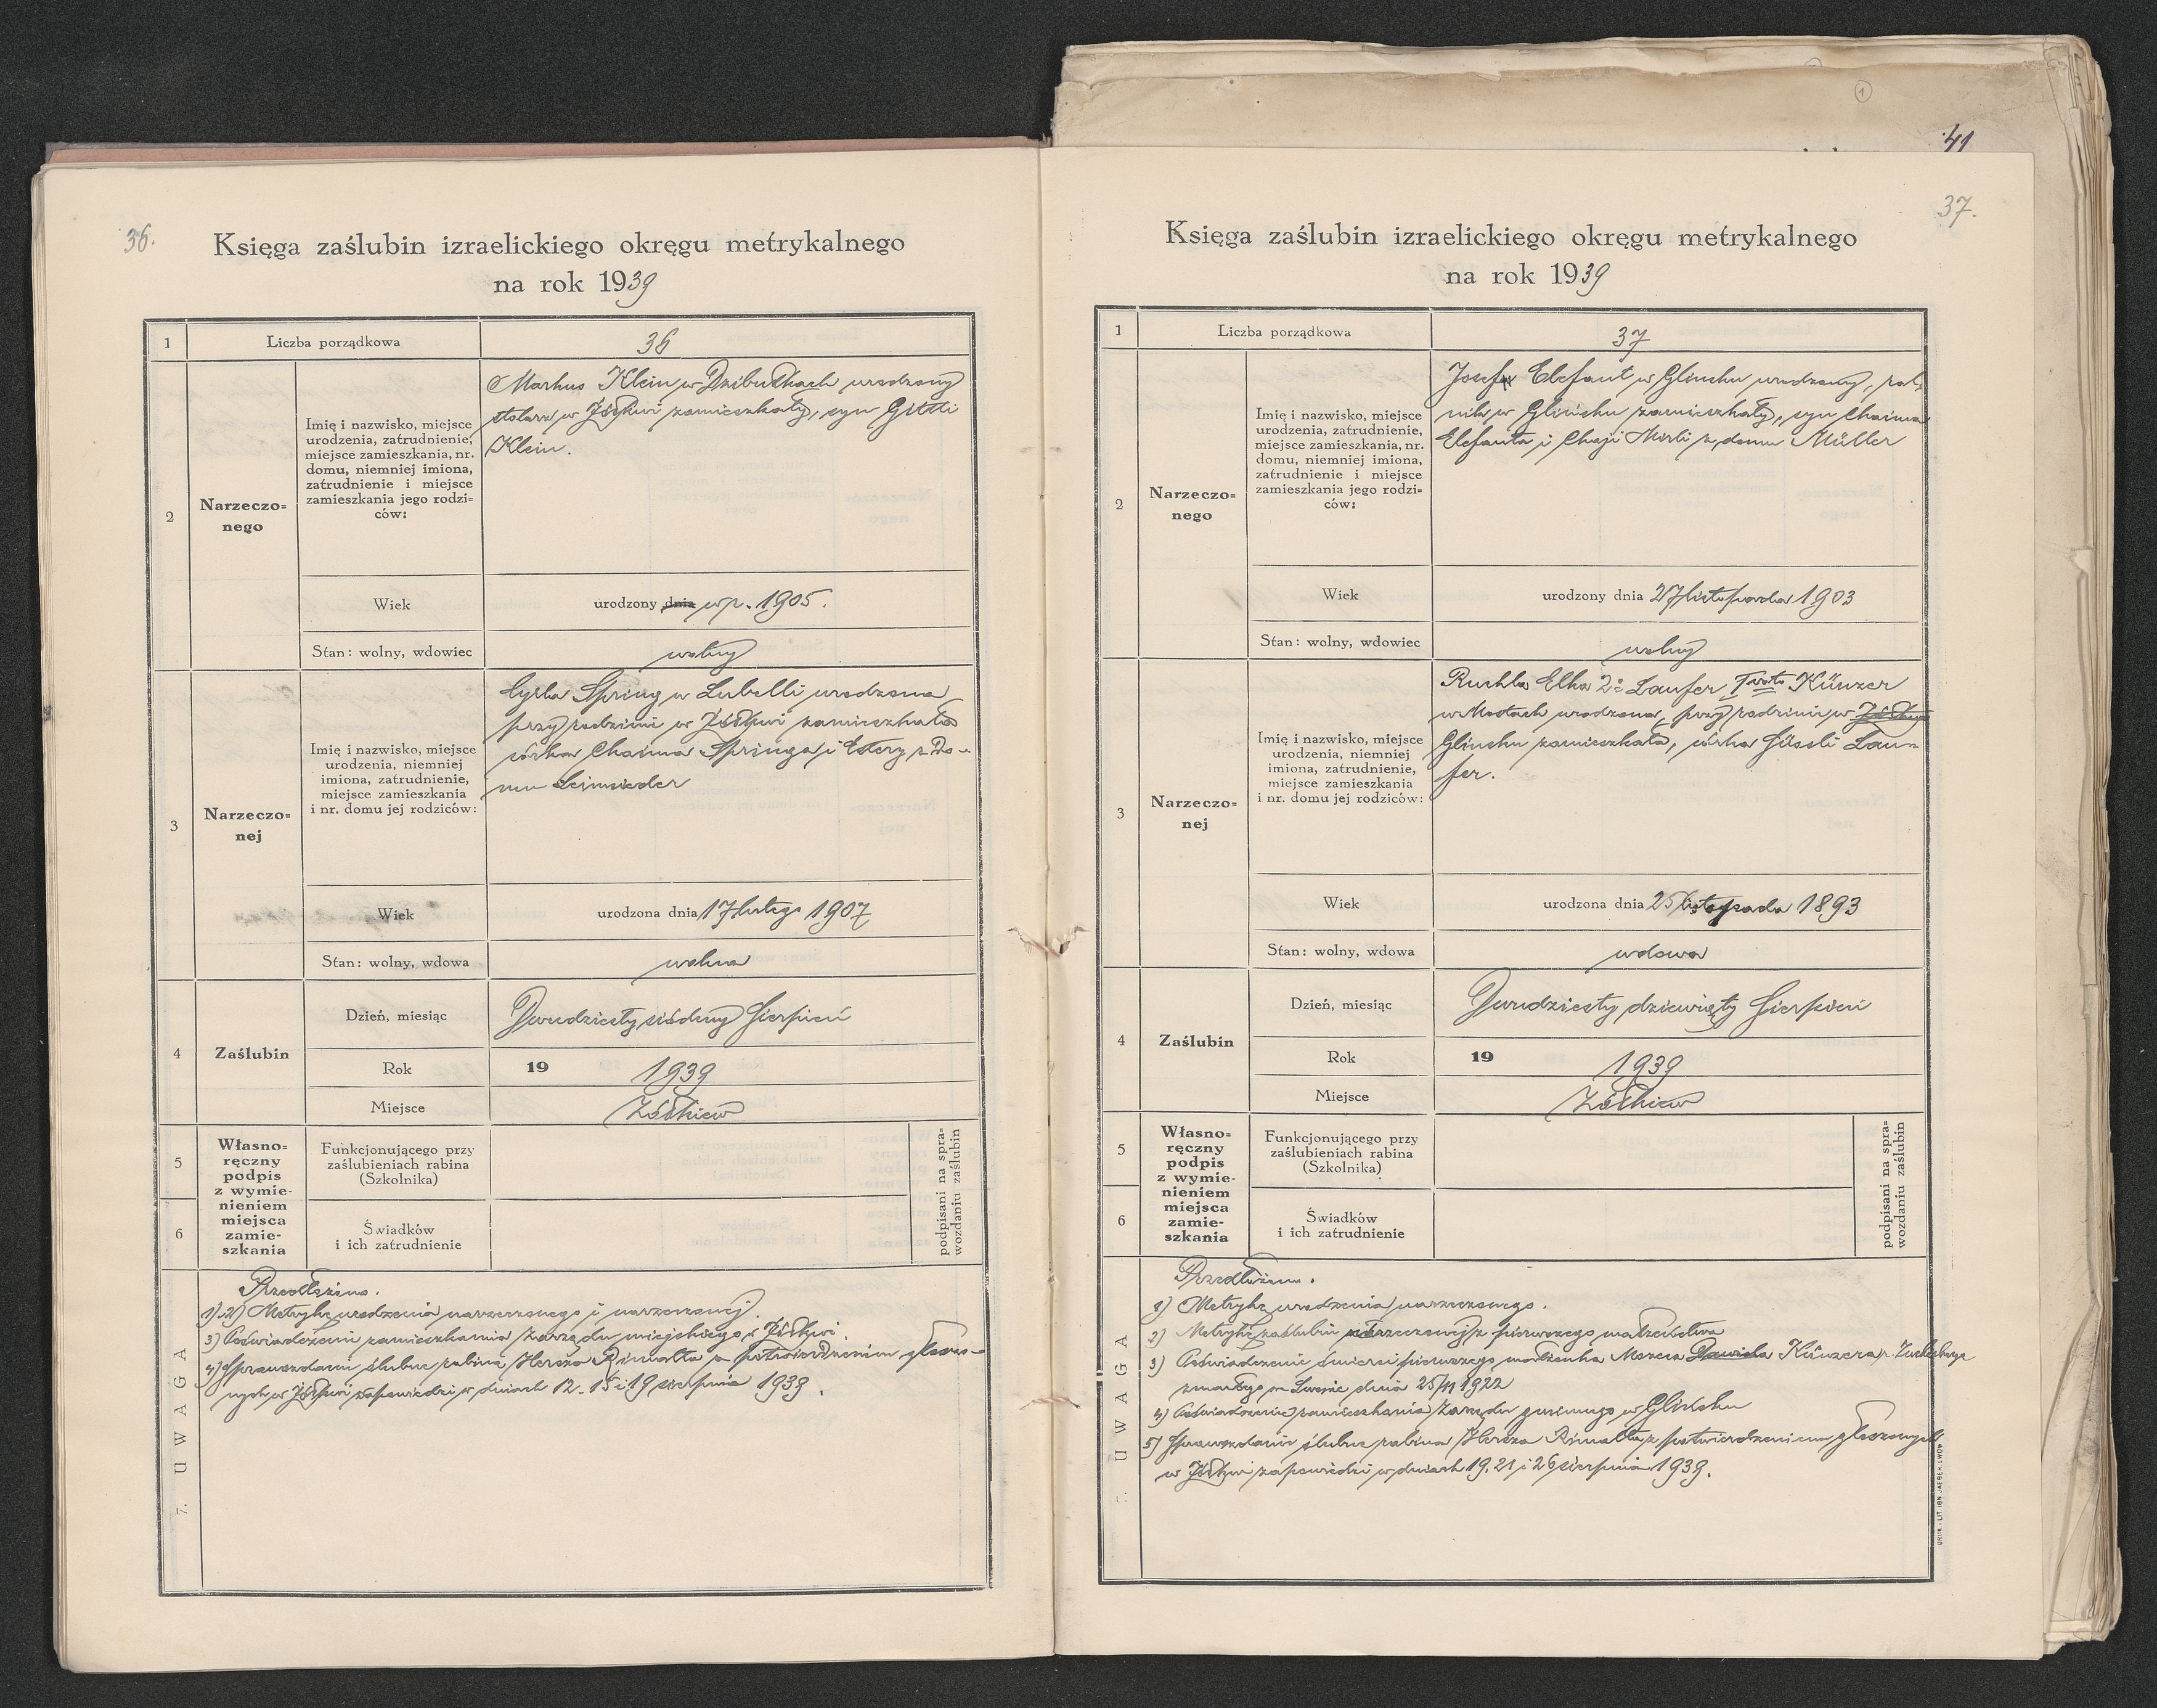 41
36.
Księga zaślubin izraelickiego okręgu metrykalnego
na rok 1939
1
Liczba porządkowa
36
2
Narzeczo=
nego
Imię i nazwisko, miejsce
urodzenia, zatrudnienie,
miejsce zamieszkania, nr.
domu, niemniej imiona,
zatrudnienie i miejsce
zamieszkania jego rodzi=
ców:
Markus Klein w Dzibułkach urodzony
stolarz w Żółkwi zamieszkały, syn Gittli
Klein.
Wiek
urodzony dnia w r. 1905.
Stan: wolny, wdowiec
wolny
3
Narzeczo=
nej
Imię i nazwisko, miejsce
urodzenia, niemniej
imiona, zatrudnienie,
miejsce zamieszkania
i nr. domu jej rodziców:
Cyrla Spring w Lubelli urodzona
przy rodzinie w Żółkwi zamieszkała
córka Chaima Springa i Estery z Do-
mu Leimsieder
Wiek
urodzona dnia 17 lutego 1907
Stan: wolny, wdowa
wolna
4
Zaślubin
Dzień, miesiąc
Dwudziesty siódmy Sierpień
Rok
19 1939
Miejsce
Żółkiew
5
6
Własno=
ręczny
podpis
z wymie-
nieniem
miejsca
zamie-
szkania
Funkcjonującego przy
zaślubieniach rabina
(Szkolnika)
Świadków
i ich zatrudnienie
podpisani na spra-
wozdaniu zaślubin
7. UWAGA
Przedłożono.
1) 2) Metrykę urodzenia narzeczonego i narzeczonej.
3) Poświadczenie zamieszkania Zarządu miejskiego w Żółkwi.
4) Sprawozdanie ślubne rabina Hersza Rimalta z potwierdzeniem głoszo-
nych w Żółkwi zapowiedzi w dniach 12. 15 i 19 sierpnia 1939.
37.
Księga zaślubin izraelickiego okręgu metrykalnego
na rok 1939
1
Liczba porządkowa
37
2
Narzeczo=
nego
Imię i nazwisko, miejsce
urodzenia, zatrudnienie,
miejsce zamieszkania, nr.
domu, niemniej imiona,
zatrudnienie i miejsce
zamieszkania jego rodzi=
ców:
Josef Elefant w Glinsku urodzony, rol-
nik w Glińsku zamieszkały, syn Chaima
Elefanta i Chaji Mirli z domu Müller
Wiek
urodzony dnia 27 listopada 1903
Stan: wolny, wdowiec
wolny
3
Narzeczo=
nej
Imię i nazwisko, miejsce
urodzenia, niemniej
imiona, zatrudnienie,
miejsce zamieszkania
i nr. domu jej rodziców:
Ruchla Elka 2im Laufer I voto Künzer
w Mostach urodzona, przy rodzinie w Żółkwi
Glinsku zamieszkała, córka Süssli Lau-
fer.
Wiek
urodzona dnia 25 listopada 1893
Stan: wolny, wdowa
wdowa
4
Zaślubin
Dzień, miesiąc
Dwudziesty dziewiąty Sierpień
Rok
19 1939
Miejsce
Żółkiew
5
6
Własno=
ręczny
podpis
z wymie-
nieniem
miejsca
zamie-
szkania
Funkcjonującego przy
zaślubieniach rabina
(Szkolnika)
Świadków
i ich zatrudnienie
podpisani na spra-
wozdaniu zaślubin
7. UWAGA
Przedłożono.
1) Metrykę urodzenia narzeczonego.
2) Metrykę zaślubin narzeczonej z pierwszego małżeństwa
3) Poświadczenie śmierci pierwszego małżonka Mozesa Dawida Künzera
zmarłego we Lwowie dnia 25/11 1922
4) Poświadczenie zamieszkania Zarządu gminnego w Glińsku
5) Sprawozdanie ślubne rabina Hersza Rimalta z potwierdzeniem głoszonych
w Żółkwi zapowiedzi w dniach 19. 21 i 26 sierpnia 1939.
DRUK. I LIT. IGN. JAEGER, LWÓW